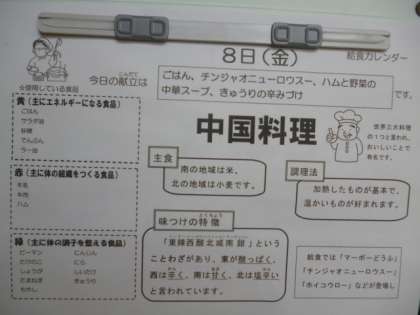 8日(金)
給食カレンダー
こんだて
今日の献立は
ごはん、チンジャオニューロウスー、ハムと野菜の
中華スープ、きゅうりの辛みづけ
です。
☆使用している食品
黄(主にエネルギーになる食品)
ごはん
サラダ油
砂糖
でんぷん
ラー油
赤(主に体の組織をつくる食品)
ハム
緑(主に体の調子を整える食品)
ピーマン　にんじん
たけのこ　にら
しょうが　しいたけ
たまねぎ　きゅうり
もやし
中国料理
世界三大料理
の1つと言われ、
おいしいことで
有名です。
主食
南の地域は米、
北の地域は小麦です。
調理法
加熱したものが基本で、
温かいものが好まれます。
味つけの特徴
「東辣西酸北咸南」という
ことわざがあり、東が酸っぱく、
西は辛く、南は甘く、北は塩辛い
と言われています。
給食では「マーボーどうふ」
「チンジャオニューロウスー」
「ホイコウロー」などが登場し